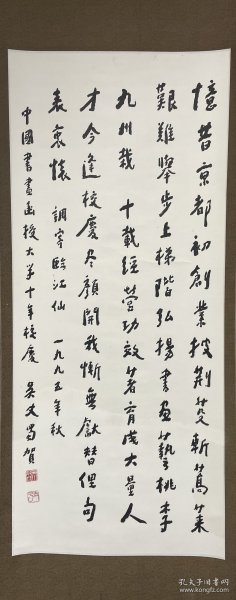 憶昔京都初創業披荊斐斬蒿萊
艱難舉步上梯階弘揚書画藝桃李
九州栽 十載經營功效著育成大量人
才今逢校慶尽顏開我慚無獻替俚句
表衷懷 調寄臨江仙 一九九五年秋
中國書畫函授大学十年校慶 吴文蜀賀
孔夫子旧书网